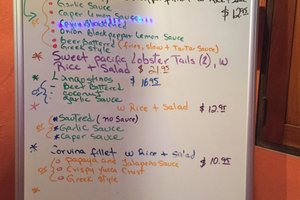 Garlic Sauce
Caper Lemon Sauce... $ 12.95
Onion Black pepper Lemon Sauce
Beer Battered
Greek Style (fries, slaw + Tartar Sauce)
* Sweet pacific Lobster Tails (2), w
Rice + Salad $ 21.95
* Langostinos $ 16.95
Beer Battered
Coconut
Garlic Sauce
w Rice + Salad $ 12.95
* Sauteed (no Sauce)
* Garlic Sauce
* Caper Sauce
Corvina fillet w Rice + salad
Papaya and Jalapeño Sauce $ 10.95
Crispy Yuca Crust
Greek Style